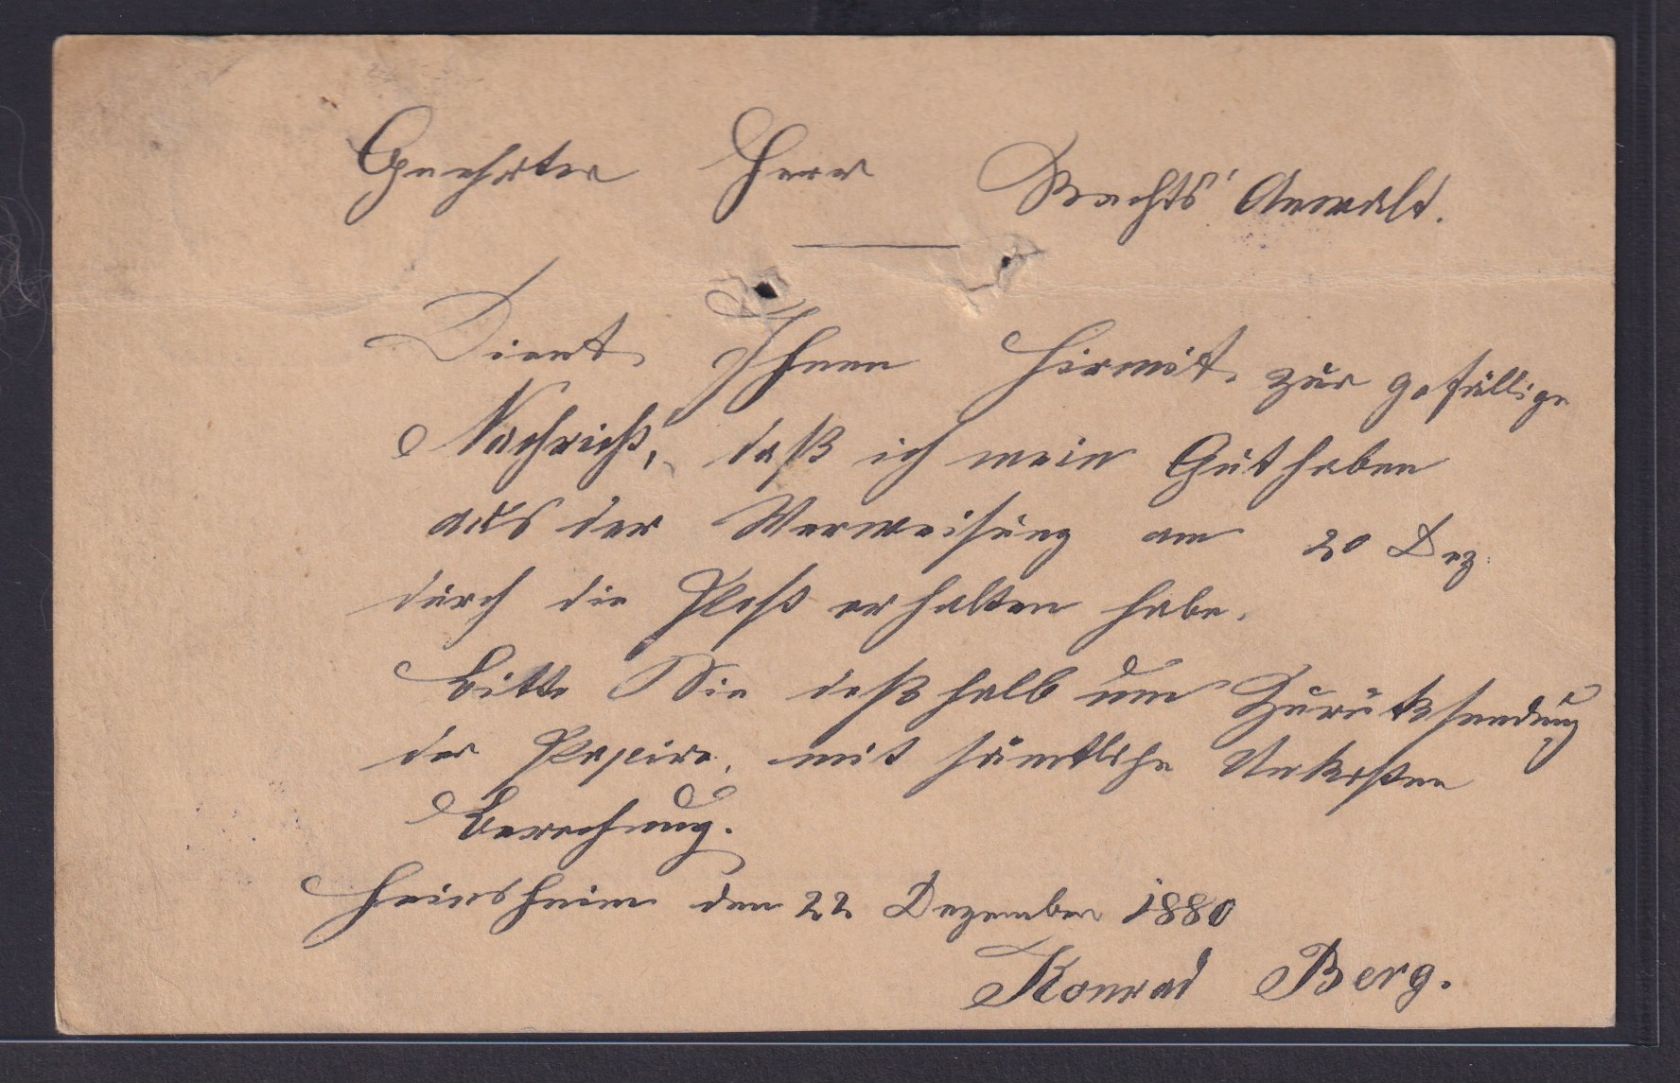 Geehrter Herr Rechts' Anwalt.
Dient Ihnen hirmit zur gefällige
Nachricht, daß ich mein Guthaben
aus der Verweisung am 20 Dez.
durch die Post erhalten habe.
Bitte Sie deßhalb um Zurüksendung
der Papire, mit sämtliche Unkosten
Berechnung.
Heinsheim den 22 Dezember 1880
Konrad Berg.